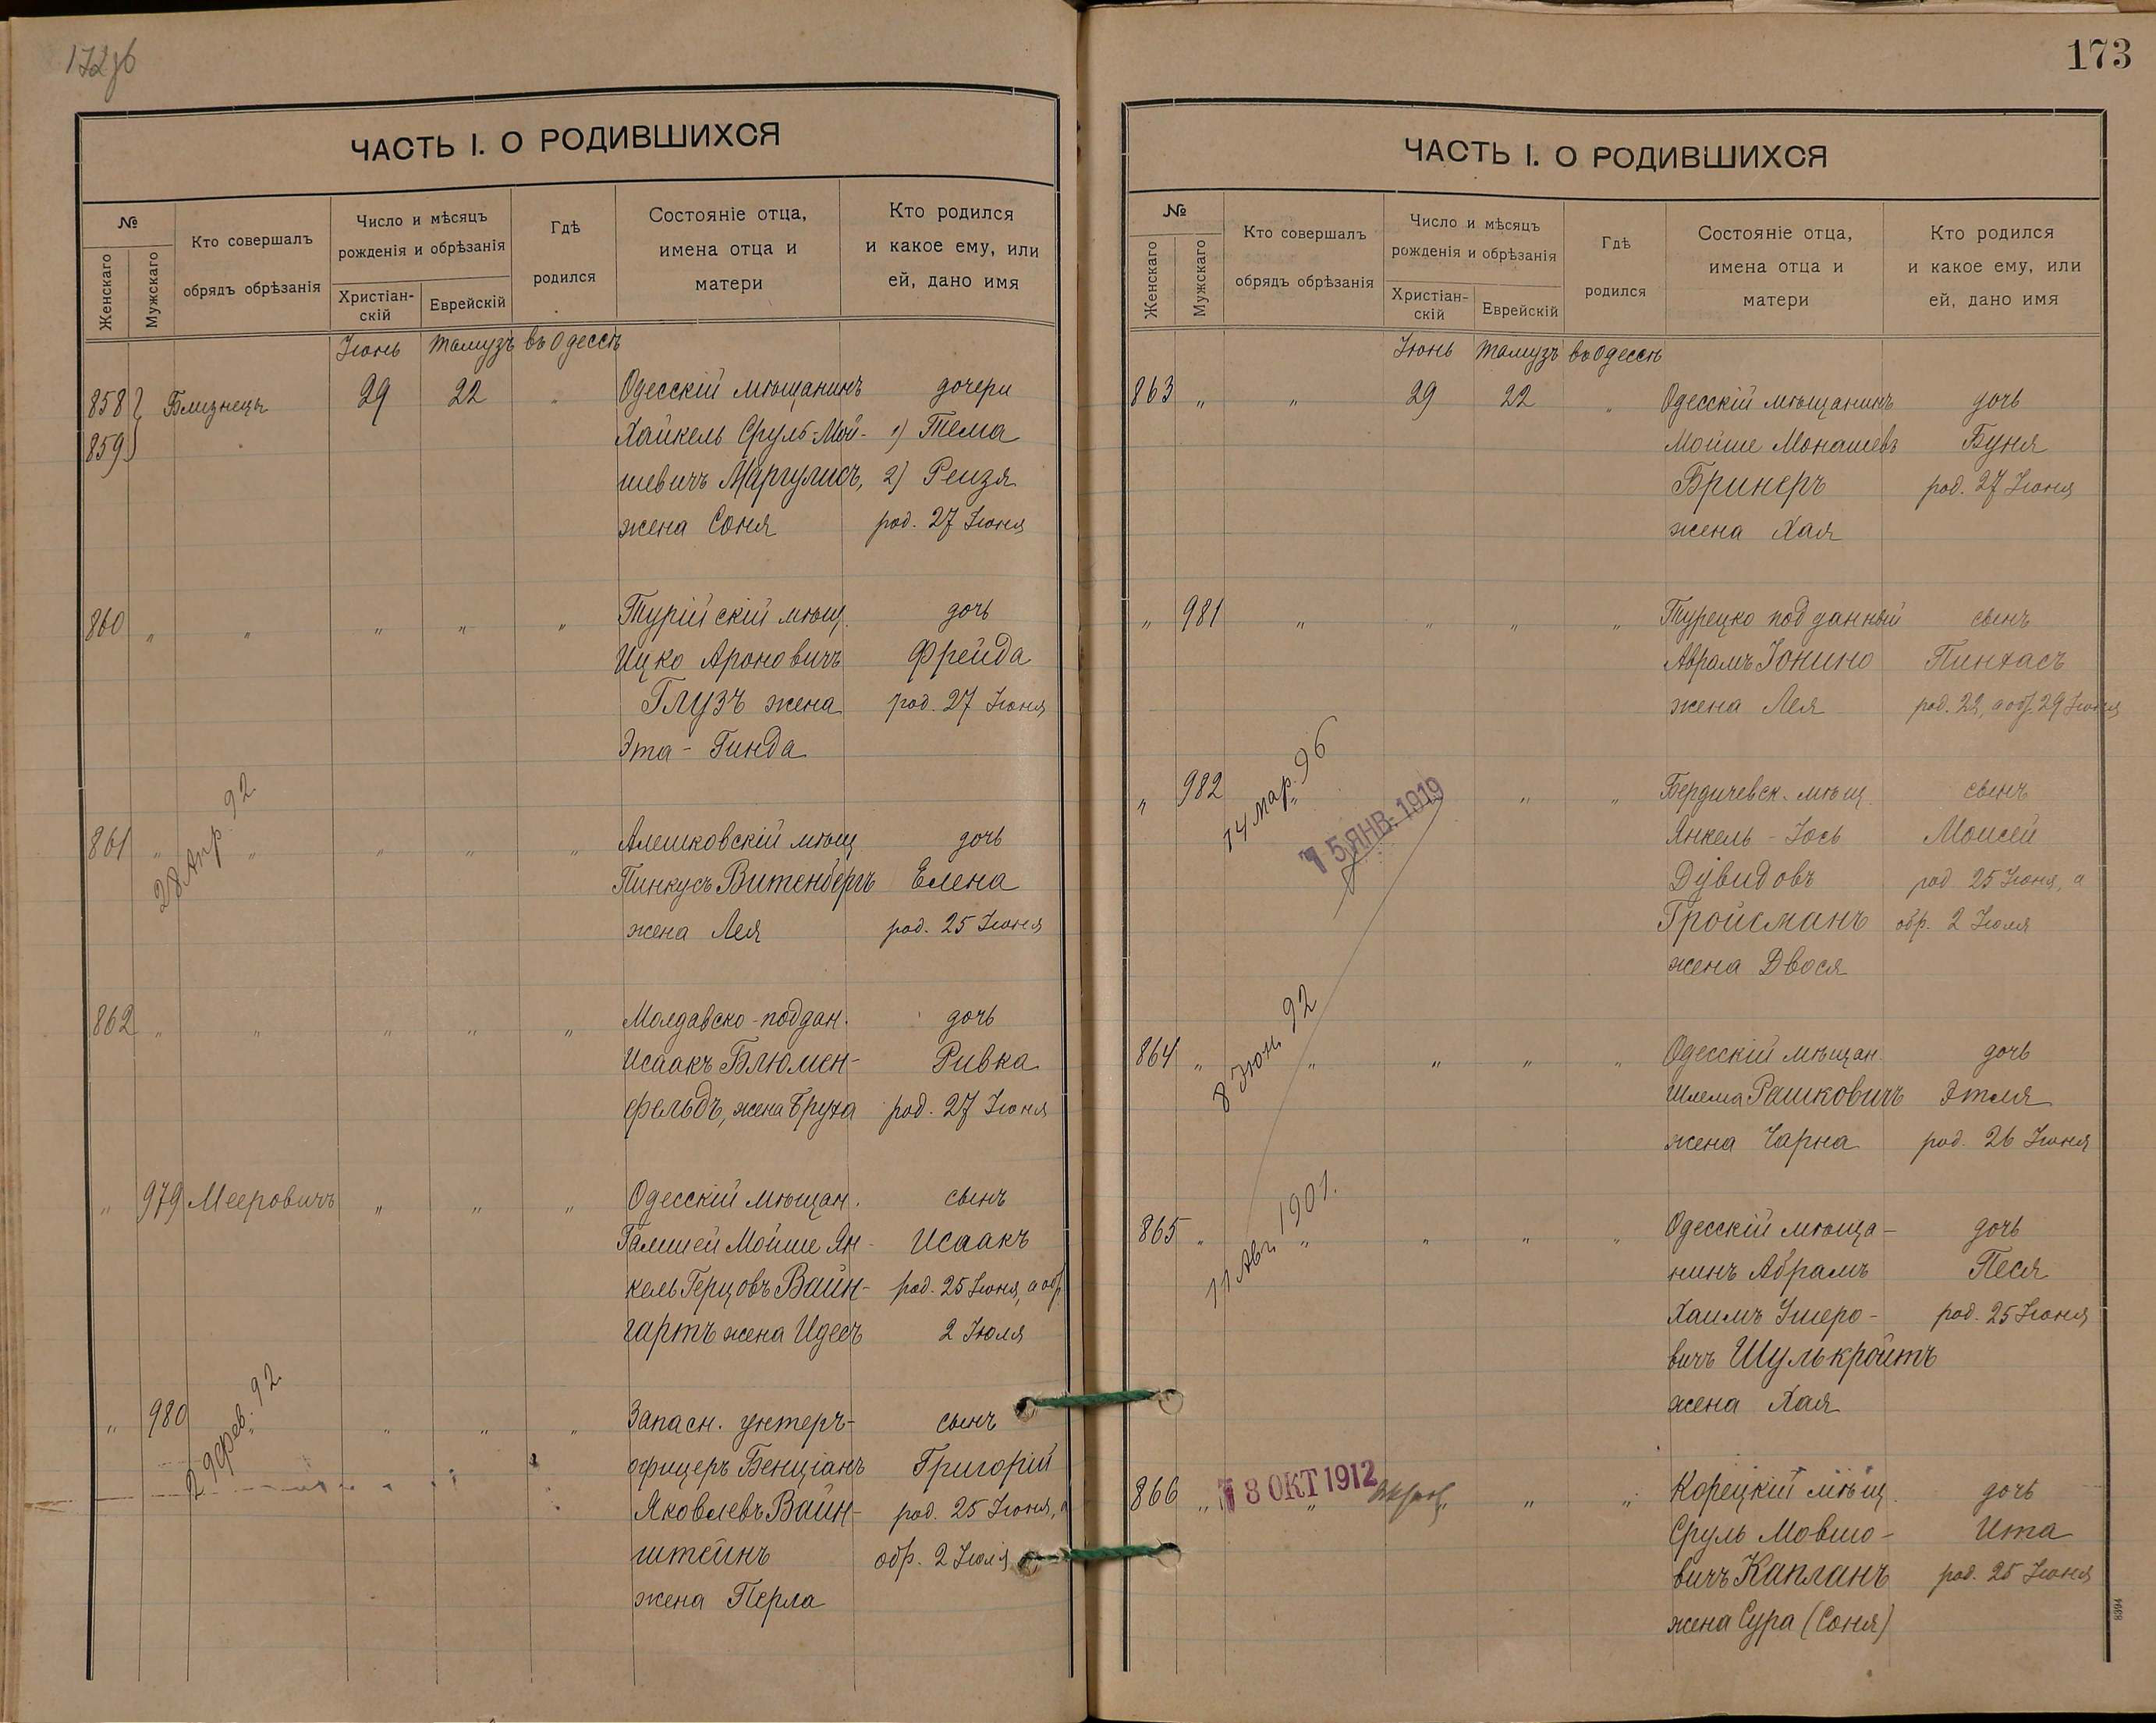 172об
ЧАСТЬ I. О РОДИВШИХСЯ
№
Женскаго
Мужскаго
Кто совершалъ
обрядъ обрѣзанія
Число и мѣсяцъ
рожденія и обрѣзанія
Христіан-
скій
Еврейскій
Гдѣ
родился
Состояніе отца,
имена отца и
матери
Кто родился
и какое ему, или
ей, дано имя
Іюнь Тамузъ въ Одессѣ
858 Близнецы 29 22 " Одесскій мѣщанинъ дочери
859 Хайкель Сруль-Мой- 1) Тема
шевичъ Маргулисъ, 2) Рейзя
жена Соня род. 27 Іюня
860 " " " " " Турійскій мѣщ. дочь
Ицко Ароновичъ Фрейда
Глузъ жена род. 27 Іюня
Эта-Гинда
28 Апр. 92
861 " " " " " Алешковскій мѣщ дочь
Пинкусъ Витенбергъ Елена
жена Лея род. 25 Іюня
862 " " " " " Молдавско-поддан. дочь
Исаакъ Блюмен- Ривка
фельдъ, жена Бруха род. 27 Іюня
" 979 Мееровичъ " " " Одесскій мѣщан. сынъ
Мойше Ян- Исаакъ
кель Герцовъ Вайн- род. 25 Іюня, а обр.
гартъ жена Идесъ 2 Іюля
29 фев. 92
" 980 " " " " Запасн. унтеръ- сынъ
офицеръ Бенціанъ Григорій
Яковлевъ Вайн- род. 25 Іюня, а
штейнъ обр. 2 Іюля
жена Перла
173
ЧАСТЬ I. О РОДИВШИХСЯ
№
Женскаго
Мужскаго
Кто совершалъ
обрядъ обрѣзанія
Число и мѣсяцъ
рожденія и обрѣзанія
Христіан-
скій
Еврейскій
Гдѣ
родился
Состояніе отца,
имена отца и
матери
Кто родился
и какое ему, или
ей, дано имя
Іюнь Тамузъ въ Одессѣ
863 " " 29 22 " Одесскій мѣщанинъ дочь
Мойше Монашевъ Буня
Бринеръ род. 27 Іюня
жена Хая
" 981 " " " " Турецко подданный сынъ
Абрамъ Іонино Пинхасъ
жена Лея род. 22, а обр. 29 Іюня
14 мар. 96
15 ЯНВ. 1919
" 982 " " " Бердичевск. мѣщ. сынъ
Янкель-Іось Моисей
Дувидовъ род 25 Іюня, а
Гройсманъ обр. 2 Іюля
жена Двося
8 Іюн. 92
864 " " " " " Одесскій мѣщан. дочь
Шлема Рашковичъ Этля
жена Чарна род. 26 Іюня
11 Авг. 1901.
865 " " " " " Одесскій мѣща- дочь
нинъ Абрамъ Песя
Хаимъ Ушеро- род. 25 Іюня
вичъ Шулькройтъ
жена Хая
18 ОКТ 1912
866 " " " " Корецкій мѣщ. дочь
Сруль Мовшо- Ита
вичъ Капланъ род. 25 Іюня
жена Сура (Соня)
8394